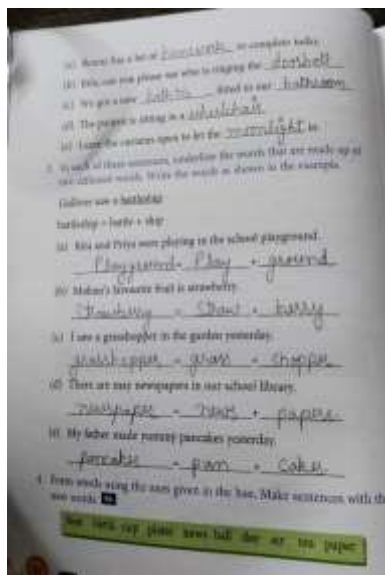 (a) Rohan has a lot of homework to complete today.
(b) Rita, can you please see who is ringing the doorbell
(c) We got a new bathtub fitted in our bathroom
(d) The patient is sitting in a wheelchair
(e) I kept the curtains open to let the moonlight in.
3. In each of these sentences, underline the words that are made up of
two different words. Write the words as shown in the example.
Gulliver saw a battleship
battleship = battle + ship
(a) Rita and Priya were playing in the school playground.
Playground = Play + ground
(b) Mohan's favourite fruit is strawberry.
Strawberry = Straw + berry
(c) I saw a grasshopper in the garden yesterday.
grasshopper = grass + hopper
(d) There are many newspapers in our school library.
newspaper = news + papers
(e) My father made yummy pancakes yesterday.
pancakes = pan + cakes
4. Form words using the ones given in the box. Make sentences with the
new words.
cup plate news ball day air tea paper